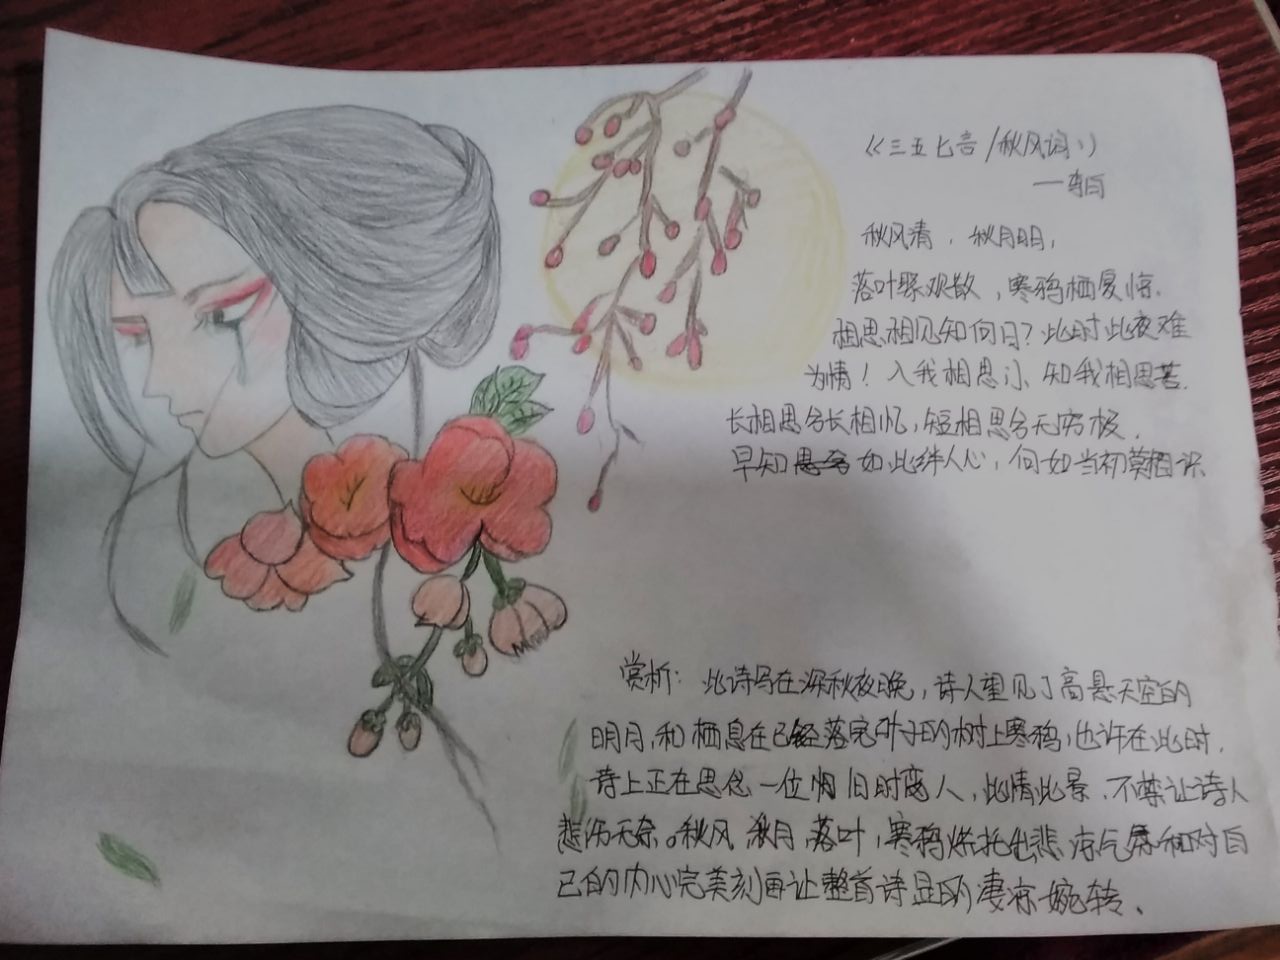 《三五七言/秋风词》
—李白
秋风清，秋月明，
落叶聚观散，寒鸦栖复惊.
相思相见知何日？此时此夜难
为情！入我相思门，知我相思苦.
长相思兮长相忆，短相思兮无穷极.
早知如此绊人心，何如当初莫相识
赏析：此诗写在深秋夜晚，诗人望见了高悬天空的
明月，和栖息在已经落完叶子的树上寒鸦，也许在此时.
诗上正在思念一位旧时恋人，此情此景.不禁让诗人
悲伤无奈。秋风 秋月 落叶，寒鸦烘托出悲凉气氛和对自
己的内心完美刻画让整首诗显的凄凉婉转、